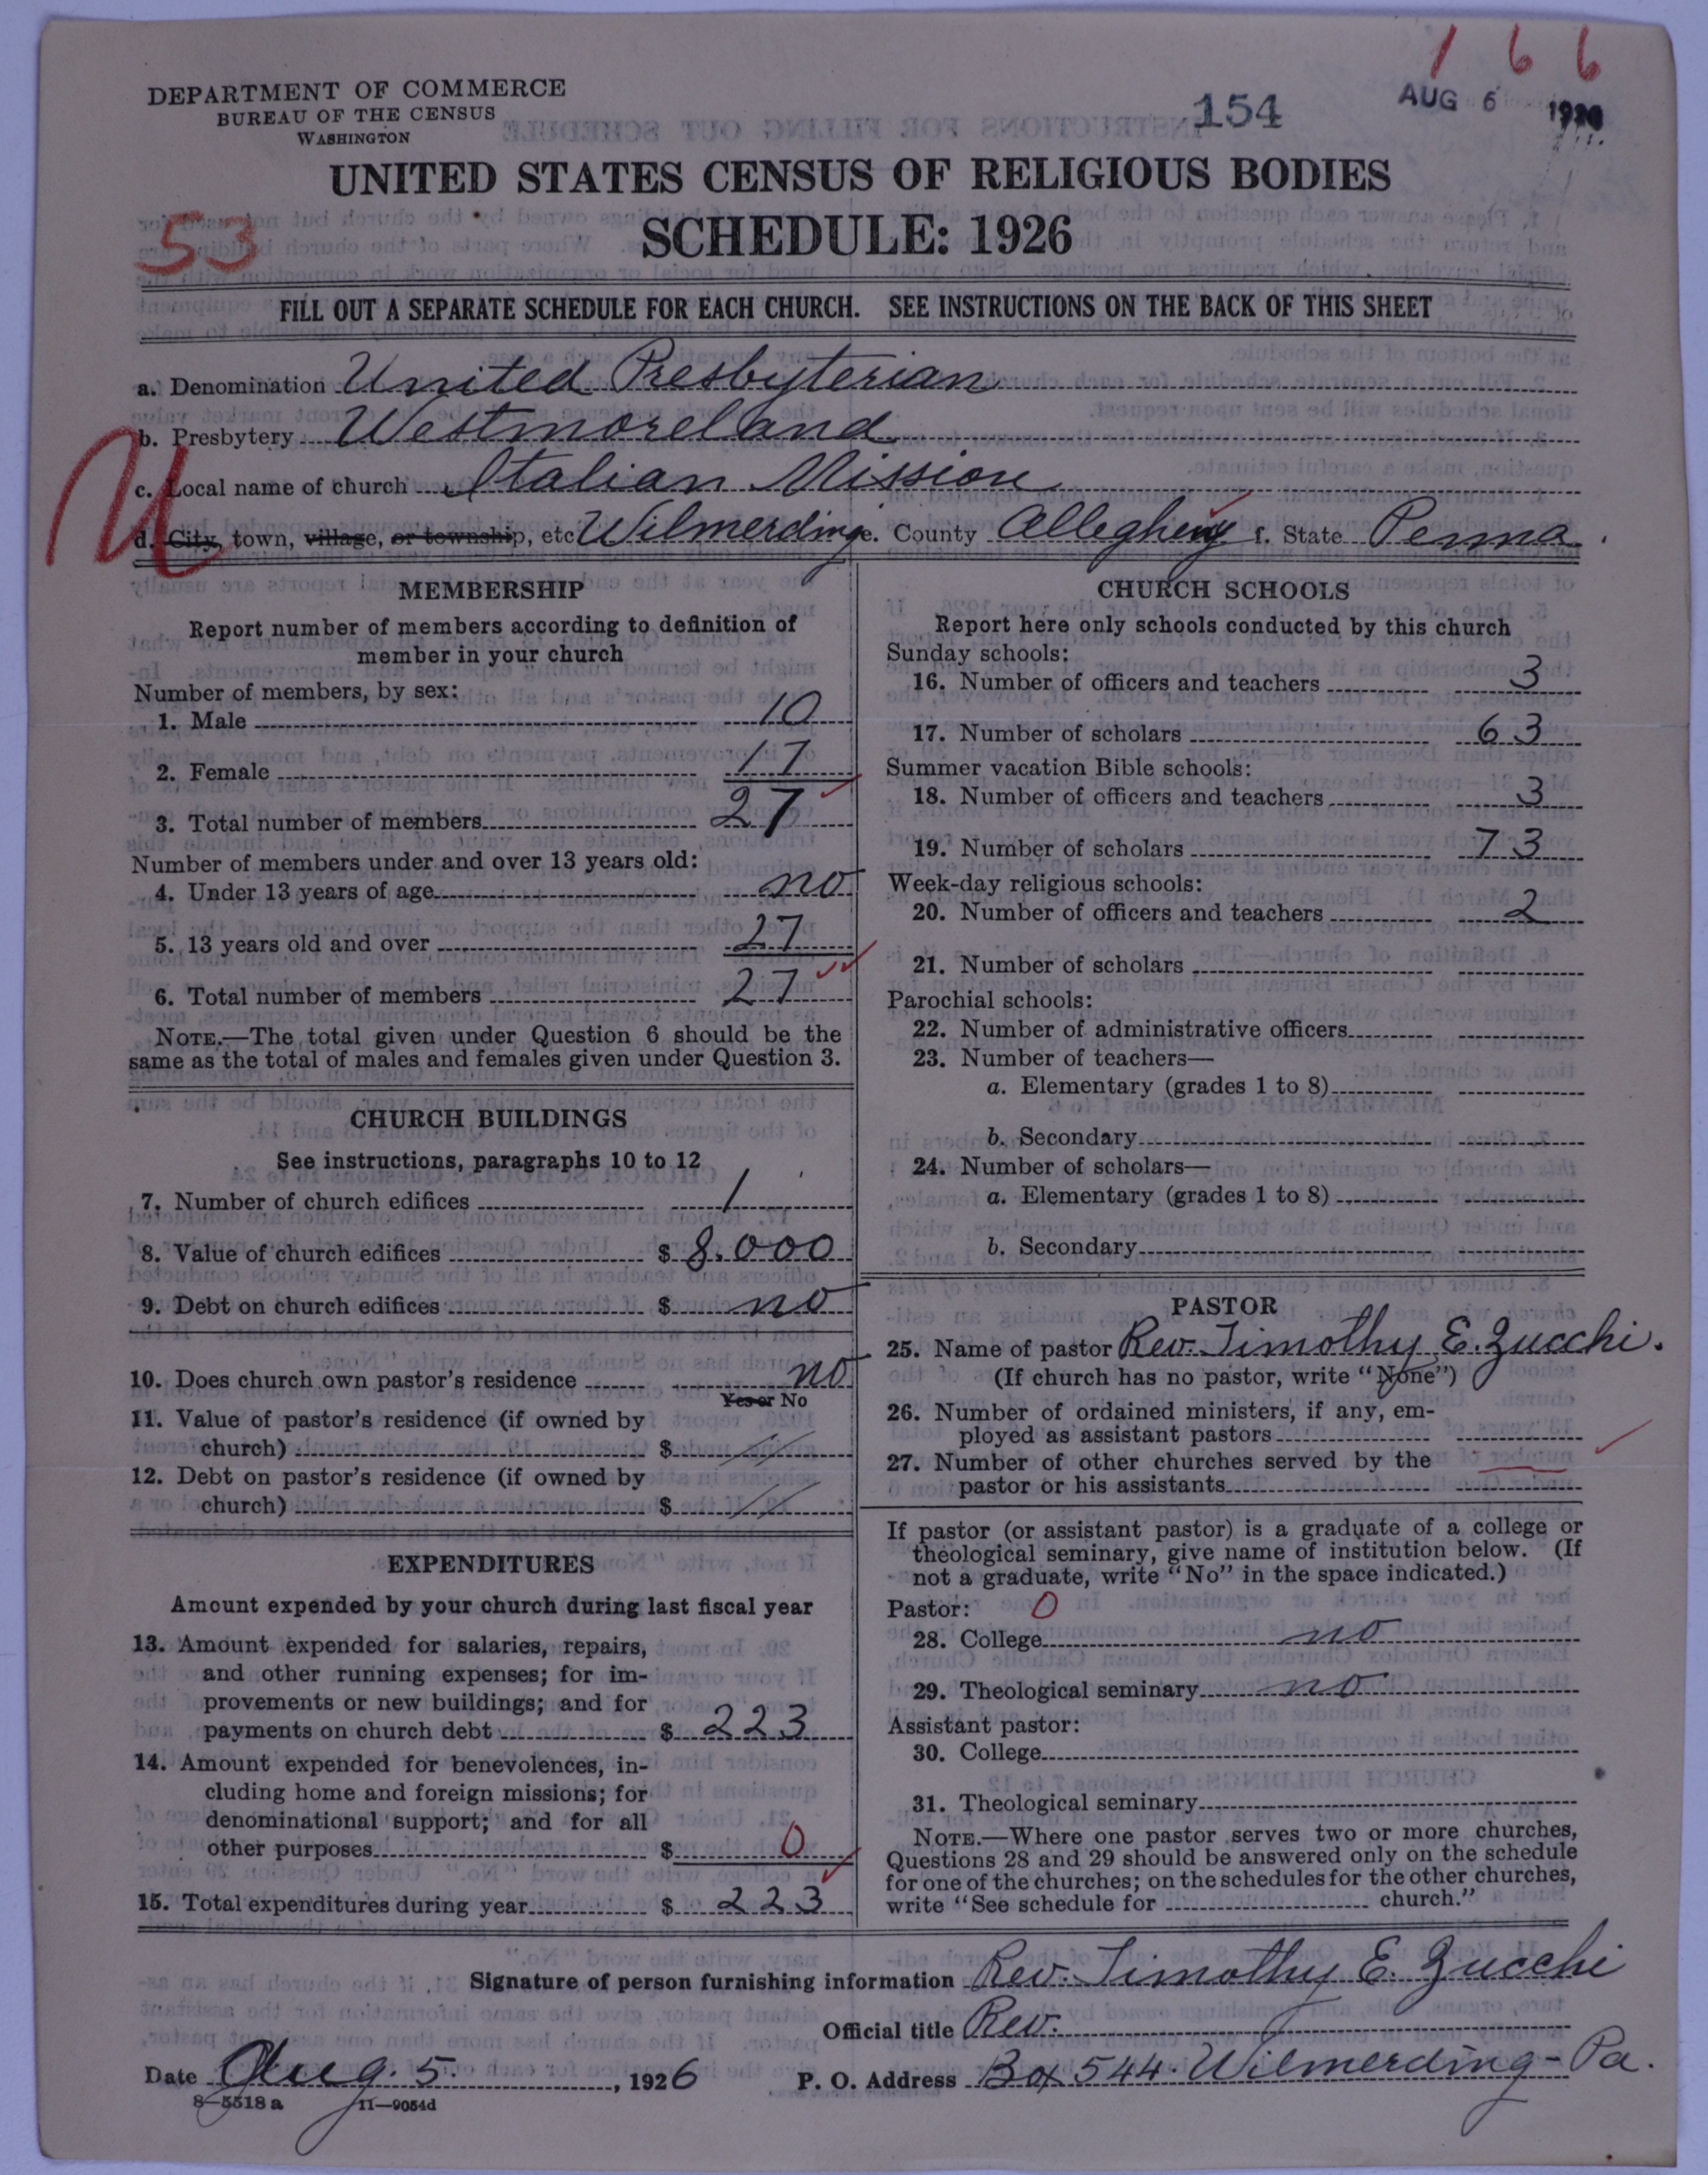 166
DEPARTMENT OF COMMERCE
BUREAU OF THE CENSUS
WASHINGTON
154
AUG 6 1926
UNITED STATES CENSUS OF RELIGIOUS BODIES
53
SCHEDULE: 1926
FILL OUT A SEPARATE SCHEDULE FOR EACH CHURCH. SEE INSTRUCTIONS ON THE BACK OF THIS SHEET
a. Denomination United Presbyterian
b. Presbytery Westmoreland
U
c. Local name of church Italian Mission
d. City, town, village, or township, etc Wilmerding e. County Allegheny f. State Penna.
MEMBERSHIP
Report number of members according to definition of
member in your church
Number of members, by sex:
1. Male 10
2. Female 17
3. Total number of members 27
Number of members under and over 13 years old:
4. Under 13 years of age no
5. 13 years old and over 27
6. Total number of members 27
NOTE.—The total given under Question 6 should be the
same as the total of males and females given under Question 3.
CHURCH BUILDINGS
See instructions, paragraphs 10 to 12
7. Number of church edifices 1
8. Value of church edifices $ 8.000
9. Debt on church edifices $ no
10. Does church own pastor's residence no
Yes or No
11. Value of pastor's residence (if owned by
church) $ //
12. Debt on pastor's residence (if owned by
church) $ //
EXPENDITURES
Amount expended by your church during last fiscal year
13. Amount expended for salaries, repairs,
and other running expenses; for im-
provements or new buildings; and for
payments on church debt $ 223
14. Amount expended for benevolences, in-
cluding home and foreign missions; for
denominational support; and for all
other purposes $ 0
15. Total expenditures during year $ 223
CHURCH SCHOOLS
Report here only schools conducted by this church
Sunday schools:
16. Number of officers and teachers 3
17. Number of scholars 63
Summer vacation Bible schools:
18. Number of officers and teachers 3
19. Number of scholars 73
Week-day religious schools:
20. Number of officers and teachers 2
21. Number of scholars
Parochial schools:
22. Number of administrative officers
23. Number of teachers—
a. Elementary (grades 1 to 8)
b. Secondary
24. Number of scholars—
a. Elementary (grades 1 to 8)
b. Secondary
PASTOR
25. Name of pastor Rev. Timothy E. Zucchi.
(If church has no pastor, write "None")
26. Number of ordained ministers, if any, em-
ployed as assistant pastors
27. Number of other churches served by the
pastor or his assistants
If pastor (or assistant pastor) is a graduate of a college or
theological seminary, give name of institution below. (If
not a graduate, write "No" in the space indicated.)
Pastor: 0
28. College no
29. Theological seminary no
Assistant pastor:
30. College
31. Theological seminary
NOTE.—Where one pastor serves two or more churches,
Questions 28 and 29 should be answered only on the schedule
for one of the churches; on the schedules for the other churches,
write "See schedule for church."
Signature of person furnishing information Rev. Timothy E. Zucchi
Official title Rev.
Date Aug. 5. , 1926 P. O. Address Box 544. Wilmerding - Pa.
8—5518 a 11—9054d